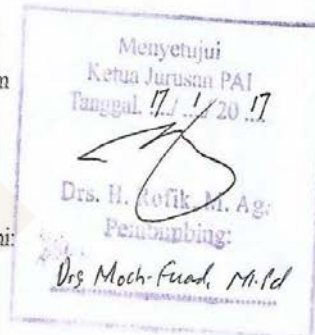 Menyetujui
Ketua Jurusan PAI
Tanggal. 17 / 1 / 20 17
Drs. H. Rofik, M. Ag.
Pembimbing:
Drs Moch. Fuad, M.Pd